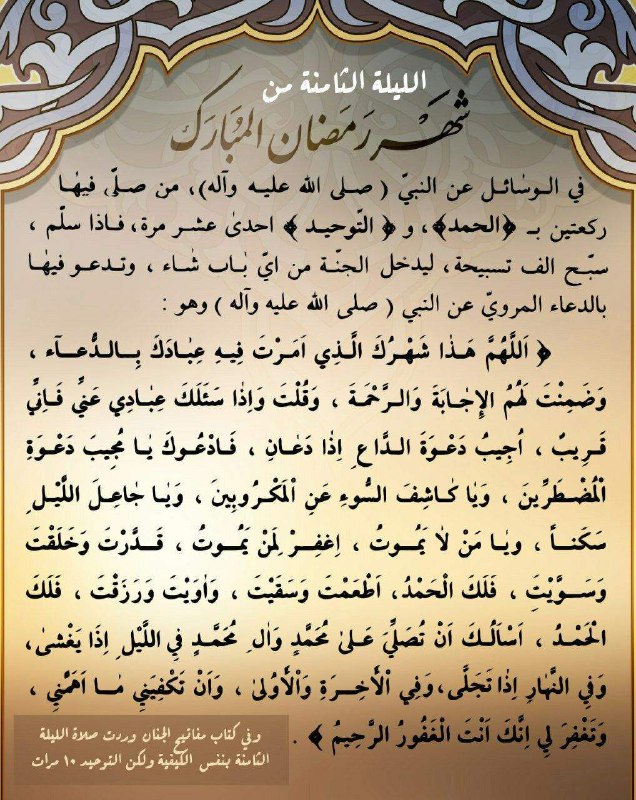 الليلة الثامنة من
شهر رمضان المبارك
في الوسائل عن النبيّ ( صلى الله عليه وآله)، من صلّى فيها
ركعتين بـ ﴿الحمد﴾، و ﴿ التّوحيد ﴾ احدىٰ عشر مرة، فاذا سلّم ،
سبّح الف تسبيحة، ليدخل الجنّة من ايّ باب شاء ، وتدعو فيها
بالدعاء المرويّ عن النبي ( صلى الله عليه وآله ) وهو :
﴿ اَللَّهُمَّ هَذا شَهْرُكَ الَّذِي اَمَرْتَ فِيهِ عِبادَكَ بِالدُّعآء ،
وَضَمِنْتَ لَهُمُ الإِجابَةَ وَالرَّحْمَةَ ، وَقُلْتَ وَاِذا سَئَلَكَ عِبادِي عَنِّي فَاِنِّي
قَرِيبٌ ، اُجِيبُ دَعْوَةَ الدَّاعِ اِذا دَعانِ ، فَادْعُوكَ يا مُجِيبَ دَعْوَةِ
الْمُضْطَرِّينَ ، وَيا كاشِفَ السُّوءِ عَنِ اْلمَكْرُوبِينَ ، وَيا جاعِلَ اللَّيْلِ
سَكَناً ، ويا مَنْ لا يَمُوتُ ، اِغفِرْ لِمَنْ يَمُوتُ ، قَدَّرْتَ وَخَلَقْتَ
وَسَوَّيْتَ ، فَلَكَ الْحَمْدُ، اَطْعَمْتَ وَسَقَيْتَ ، وَاوَيْتَ وَرَزَقْتَ ، فَلَكَ
الْحَمْدُ ، اَسْاَلُكَ اَنْ تُصَلِّيَ عَلىٰ مُحَمَّدٍ وَالِ مُحَمَّدٍ فِي اللَّيْلِ اِذَا يَغْشىٰ،
وَفِي النَّهارِ اِذا تَجَلَّى، وَفِي اْلآخِرَةِ وَاْلأُولىٰ ، وَاَنْ تَكْفِيَنِي ما اَهَمَّنِي ،
وَتَغْفِرَ لِي اِنَّكَ اَنْتَ الْغَفُورُ الرَّحِيمُ ﴾ .
وفي كتاب مفاتيح الجنان وردت صلاة الليلة
الثامنة بنفس الكيفية ولكن التوحيد ١٠ مرات